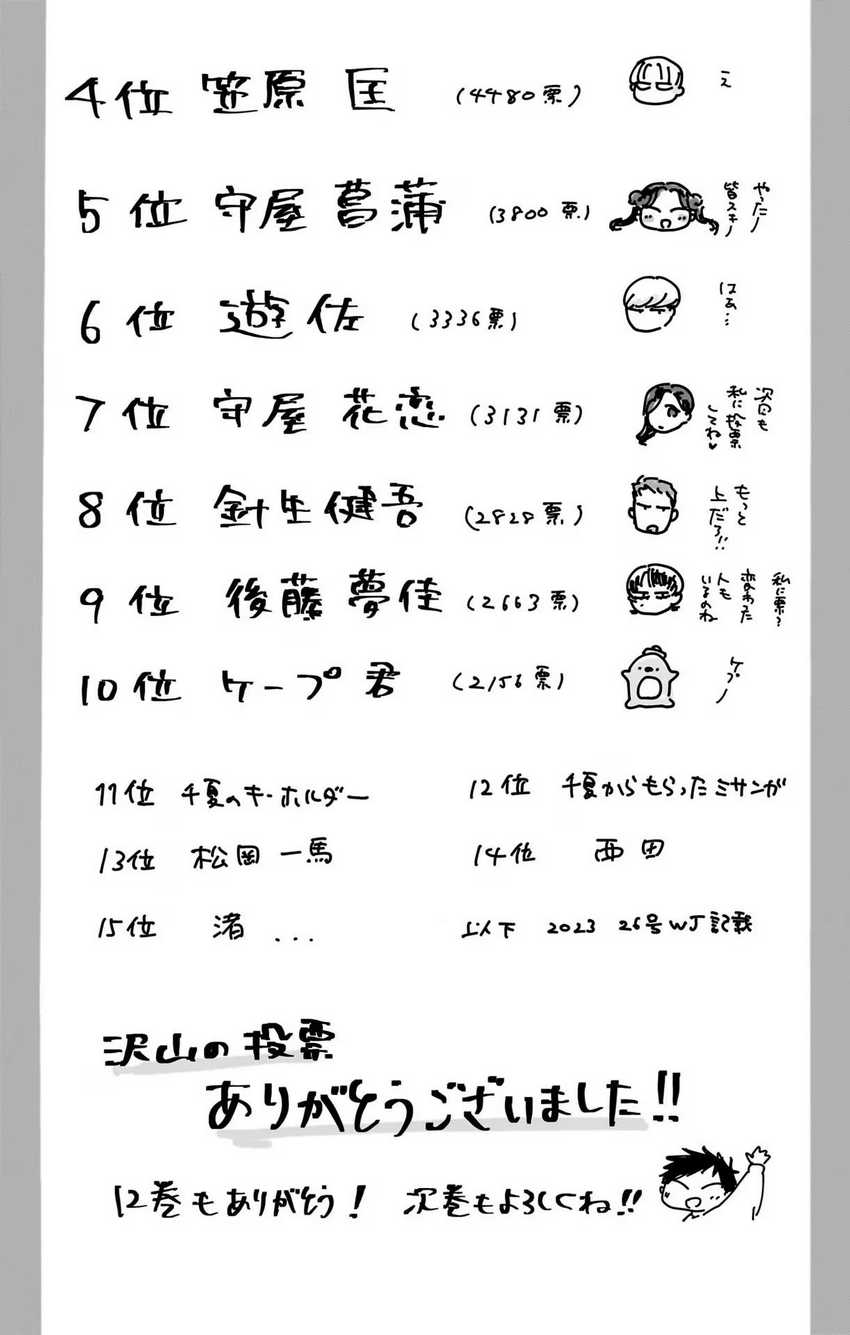 4位 笠原 匡 (4480票) え
5位 守屋 菖蒲 (3800票) やったー 皆スキー
6位 遊佐 (3336票) はぁ…
7位 守屋 花恋 (3131票) 次回も 私に投票 してね♥
8位 針生健吾 (2828票) もっと 上だろ!!
9位 後藤 夢佳 (2663票) 私に票? 変わった 人も いるのね
10位 ケープ君 (2156票) ケプー
11位 千夏のキーホルダー 12位 千夏からもらったミサンガ
13位 松岡 一馬 14位 西田
15位 渚 ... 以下 2023 26号WJ記載
沢山の投票
ありがとうございました!!
12巻もありがとう! 次巻もよろしくね!!